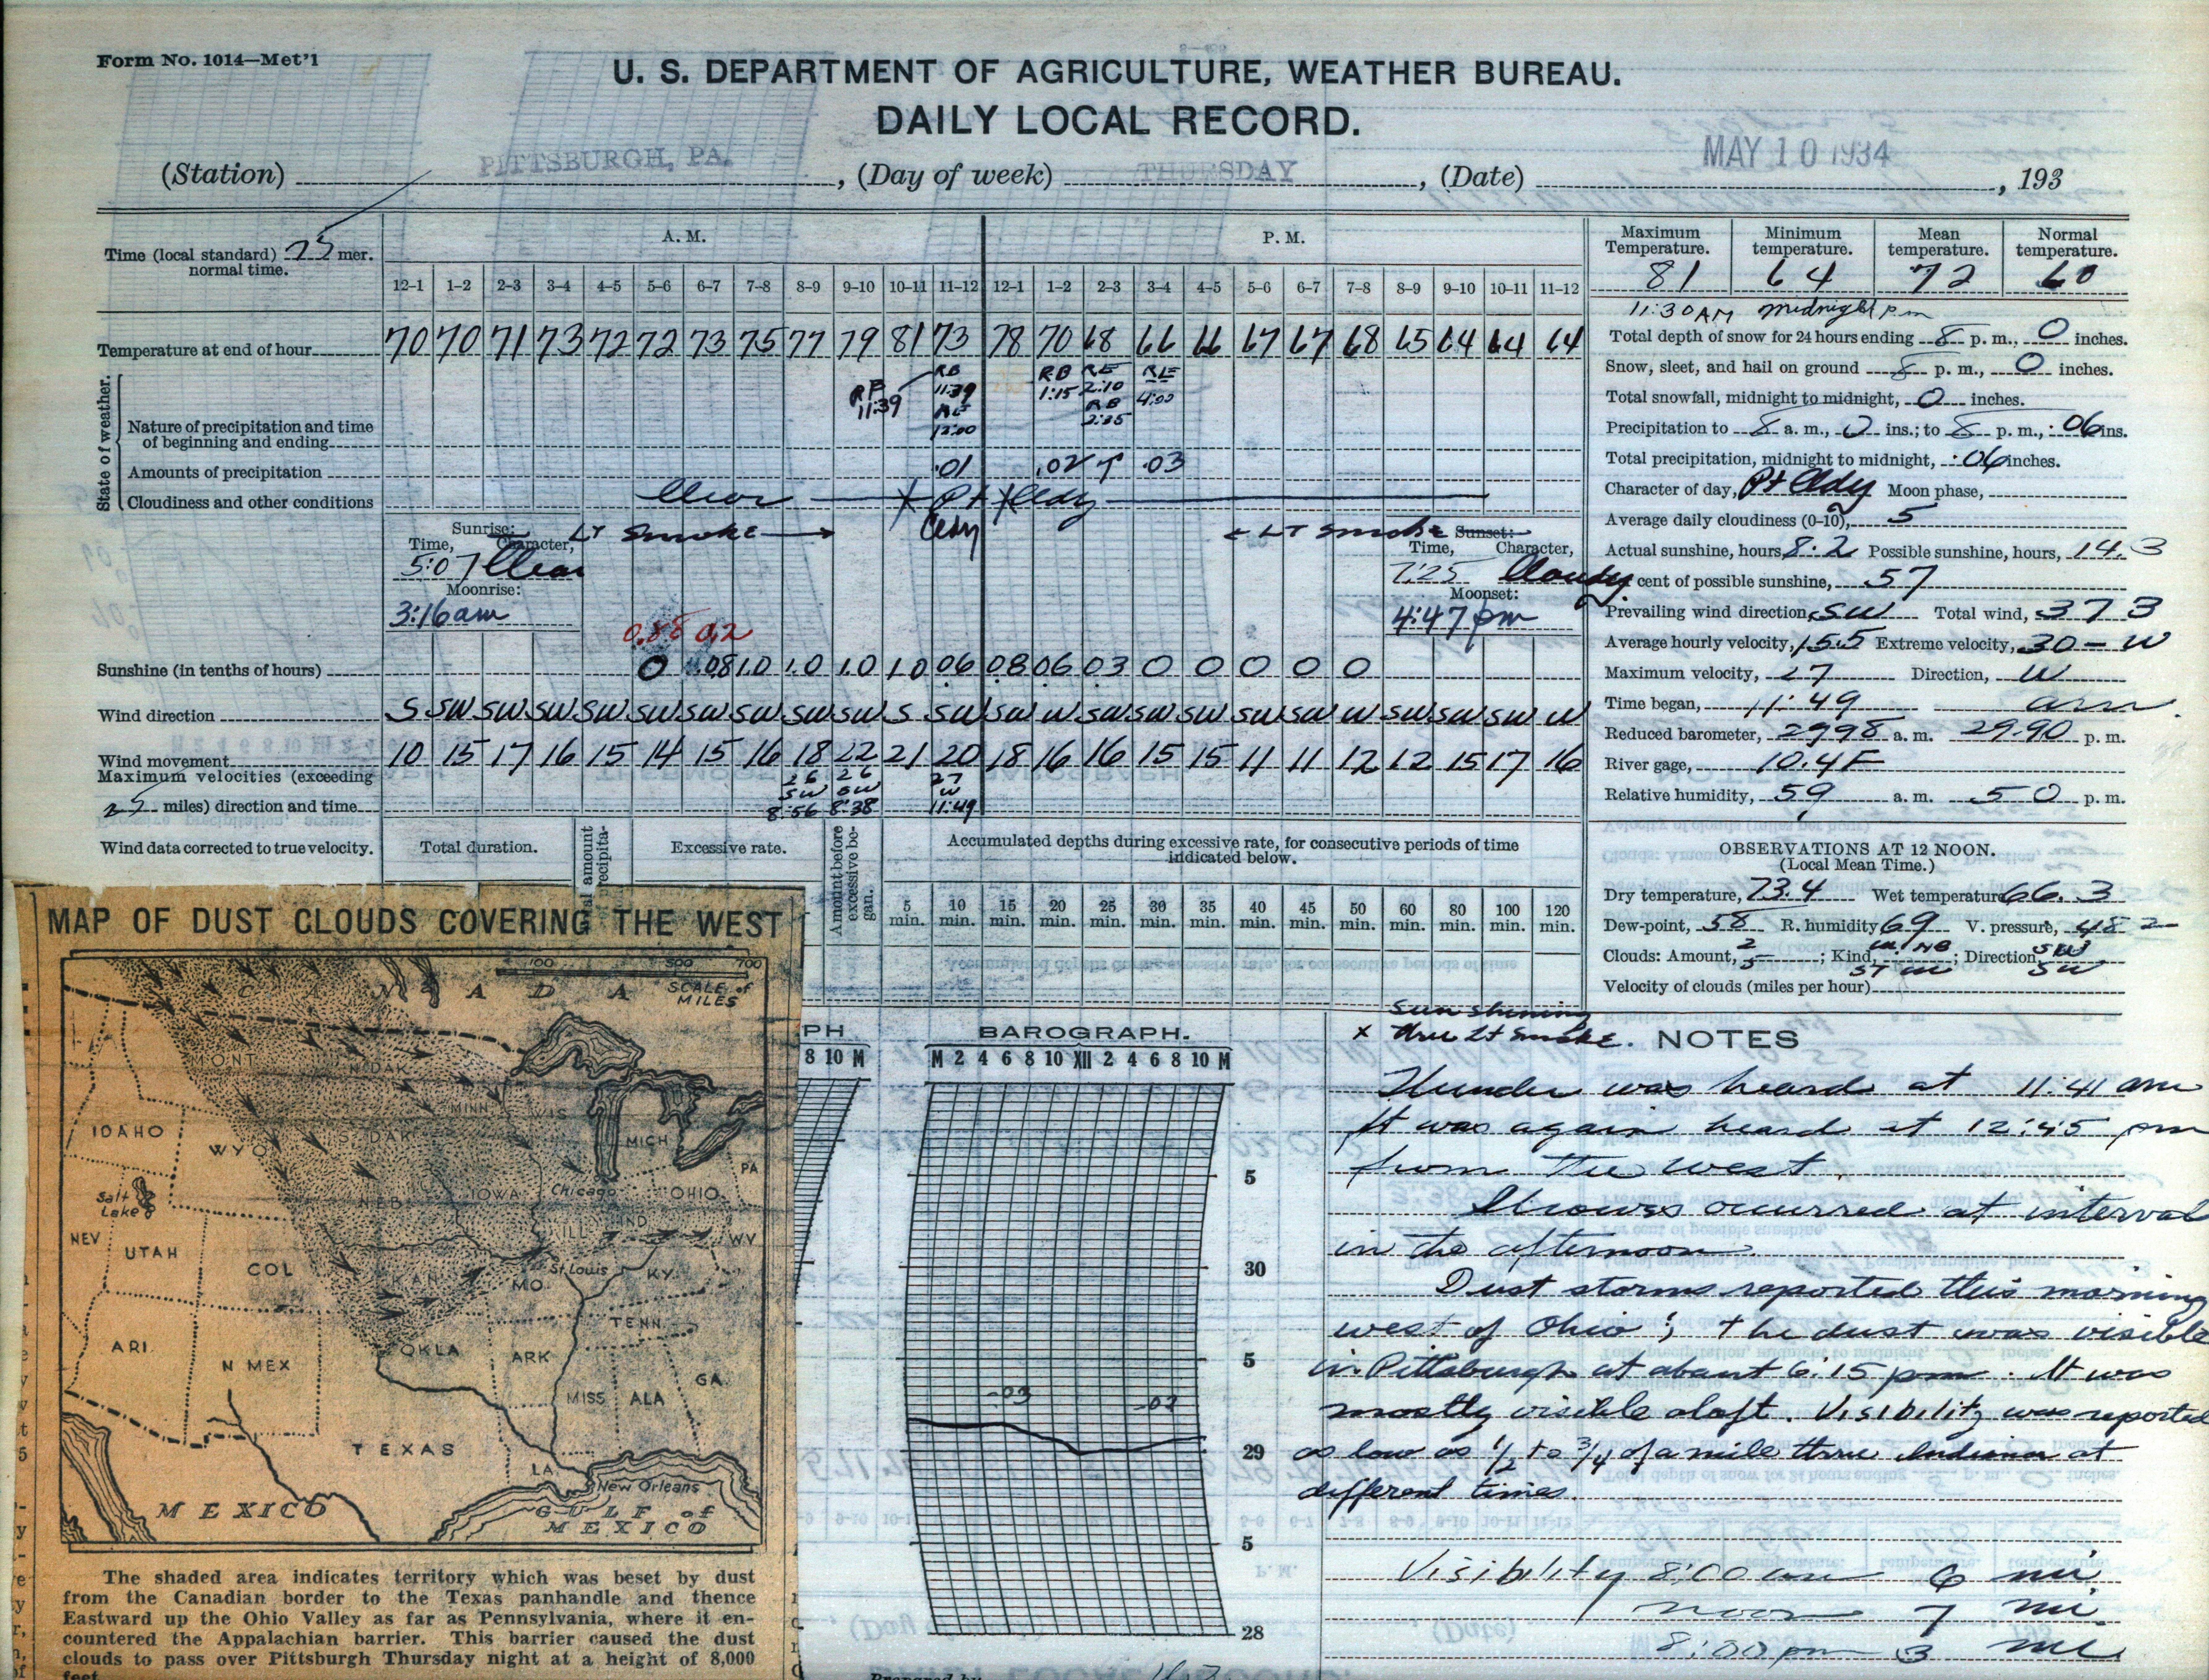 Form No. 1014—Met'l
U. S. DEPARTMENT OF AGRICULTURE, WEATHER BUREAU.
DAILY LOCAL RECORD.
(Station) PITTSBURGH, PA., (Day of week) THURSDAY, (Date) MAY 10 1934, 193
Time (local standard) 75 mer.
normal time.
A. M.
P. M.
12–1 1–2 2–3 3–4 4–5 5–6 6–7 7–8 8–9 9–10 10–11 11–12 12–1 1–2 2–3 3–4 4–5 5–6 6–7 7–8 8–9 9–10 10–11 11–12
Temperature at end of hour 70 70 71 73 72 72 73 75 77 79 81 73 78 70 68 66 66 67 67 68 65 64 64 64
State of weather.
Nature of precipitation and time
of beginning and ending
RB 11:39
RB 11:39 RE 12:00
RB 1:15
RE 2:10 RB 2:35
RE 4:00
Amounts of precipitation .01 .02 T .03
Cloudiness and other conditions Clear Pt Cldy Cldy
LT Smoke
LT Smoke
Sunrise:
Time, Character,
5:07 Clear
Moonrise:
3:16am
Sunset:
Time, Character,
7:25 Cloudy
Moonset:
4:47 pm
0.88 0.2
Sunshine (in tenths of hours) 0 .08 1.0 1.0 1.0 1.0 06 08 06 03 0 0 0 0 0
Wind direction S SW SW SW SW SW SW SW SW SW S SW SW W SW SW SW SW SW W SW SW SW W
Wind movement 10 15 17 16 15 14 15 16 18 22 21 20 18 16 16 15 15 11 11 12 12 15 17 16
Maximum velocities (exceeding
25 miles) direction and time
26 SW 8:56
26 SW 8:38
27 W 11:49
Wind data corrected to true velocity.
Total duration.
Excessive rate.
Amount before
excessive be-
gan.
Accumulated depths during excessive rate, for consecutive periods of time
indicated below.
5 min. 10 min. 15 min. 20 min. 25 min. 30 min. 35 min. 40 min. 45 min. 50 min. 60 min. 80 min. 100 min. 120 min.
Maximum Temperature. Minimum temperature. Mean temperature. Normal temperature.
81 64 72 60
11:30AM midnight pm
Total depth of snow for 24 hours ending 8 p. m., 0 inches.
Snow, sleet, and hail on ground 8 p. m., 0 inches.
Total snowfall, midnight to midnight, 0 inches.
Precipitation to 8 a. m., 0 ins.; to 8 p. m., .06 ins.
Total precipitation, midnight to midnight, .06 inches.
Character of day, Pt Cldy Moon phase,
Average daily cloudiness (0-10), 5
Actual sunshine, hours, 8.2 Possible sunshine, hours, 14.3
cent of possible sunshine, 57
Prevailing wind direction, SW Total wind, 373
Average hourly velocity, 15.5 Extreme velocity, 30 – W
Maximum velocity, 27 Direction, W
Time began, 11:49 am
Reduced barometer, 29.98 a. m. 29.90 p. m.
River gage, 10.4F
Relative humidity, 59 a. m. 50 p. m.
OBSERVATIONS AT 12 NOON.
(Local Mean Time.)
Dry temperature, 73.4 Wet temperature 66.3
Dew-point, 58 R. humidity 69 V. pressure, 482
Clouds: Amount, 2 5; Kind, ; Direction, SW SW
Velocity of clouds (miles per hour)
MAP OF DUST CLOUDS COVERING THE WEST
100 500 700
SCALE of
MILES
CANADA
MONT
N DAK
MINN
WIS
IDAHO
WYO
S DAK
MICH
PA
Salt
Lake
NEB
IOWA
Chicago
OHIO
NEV
UTAH
COL
ILL
IND
W V
KAN
MO
St Louis
KY
ARI
N MEX
OKLA
ARK
TENN
MISS
ALA
GA
TEXAS
LA
New Orleans
MEXICO
GULF of
MEXICO
The shaded area indicates territory which was beset by dust
from the Canadian border to the Texas panhandle and thence
Eastward up the Ohio Valley as far as Pennsylvania, where it en-
countered the Appalachian barrier. This barrier caused the dust
clouds to pass over Pittsburgh Thursday night at a height of 8,000
feet
PH
8 10 M
BAROGRAPH.
M 2 4 6 8 10 XII 2 4 6 8 10 M
5
30
5
-.03 -.02
29
5
28
Prepared by
sun shining
x thru Lt smoke. NOTES
Thunder was heard at 11:41 am
It was again heard at 12:45 pm
from the west.
Showers occurred at interval
in the afternoon.
Dust storms reported this morning
west of Ohio; the dust was visible
in Pittsburgh at about 6:15 pm. It was
mostly visible aloft. Visibility was reported
as low as 1/2 to 3/4 of a mile thru Indiana at
different times.
Visibility 8:00 am 6 mi.
noon 7 mi.
8:00 pm 3 mi